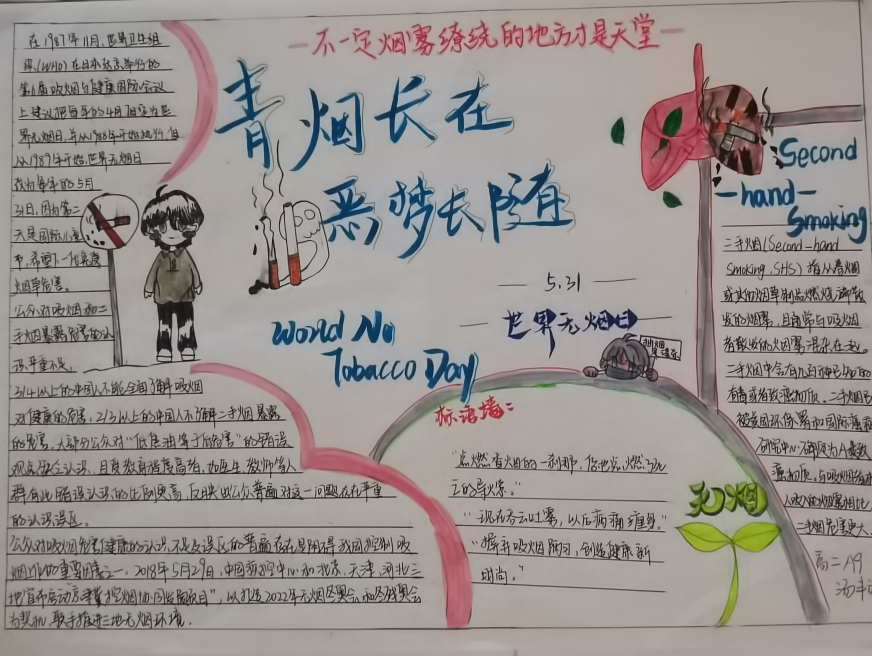 一不一定烟雾缭绕的地方才是天堂一
青烟长在
恶梦长随
World No
Tobacco Day
5.31
世界无烟日
在1987年11月,世界卫生组
织(WHO)在日本东京举行的
第6届吸烟与健康国际会议
上建议把每年的4月7日定为世
界无烟日,并从1988年开始执行,但
从1989年开始,世界无烟日
改为每年的5月
31日,因为第二
天是国际儿童
节,希望下一代免受
烟草危害。
公众对吸烟和二
手烟暴露危害的认
识严重不足。
3/4以上的中国人不能全面了解吸烟
对健康的危害,2/3以上的中国人不了解二手烟暴露
的危害。大部分公众对“低焦油等于低危害”的错误
观点缺乏认识,且受教育程度高者,如医生、教师等人
群有此错误认识的比例更高,反映出公众普遍对这一问题存在严重
的认识误区。
公众对吸烟危害健康的认识不足及误区的普遍存在是阻碍我国控制吸
烟工作的重要因素之一。2018年5月29日,中国疾控中心和北京、天津、河北三
地宣布启动京津冀控烟协同监测项目”,以打造2022年无烟冬奥会和冬残奥会
为契机,联手推进三地无烟环境.
Second
-hand-
Smoking
二手烟(Second-hand
Smoking,SHS)指从卷烟
或其他烟草制品燃烧端散
发的烟雾,且通常与吸烟
者散发的烟雾混杂在一起。
二手烟中含有几百种已知的
有毒或者致癌物质,二手烟已
被美国环保署和国际癌症
研究中心确定为人类致
癌物质,与吸烟者本
人吸入的烟雾相比,
二手烟危害更大。
标语墙:
“点燃香烟的一刹那,您也点燃了
的导火索。”
“现在吞云吐雾,以后病痛缠身。”
“摒弃吸烟陋习,创造健康新
时尚。”
无烟
高二19